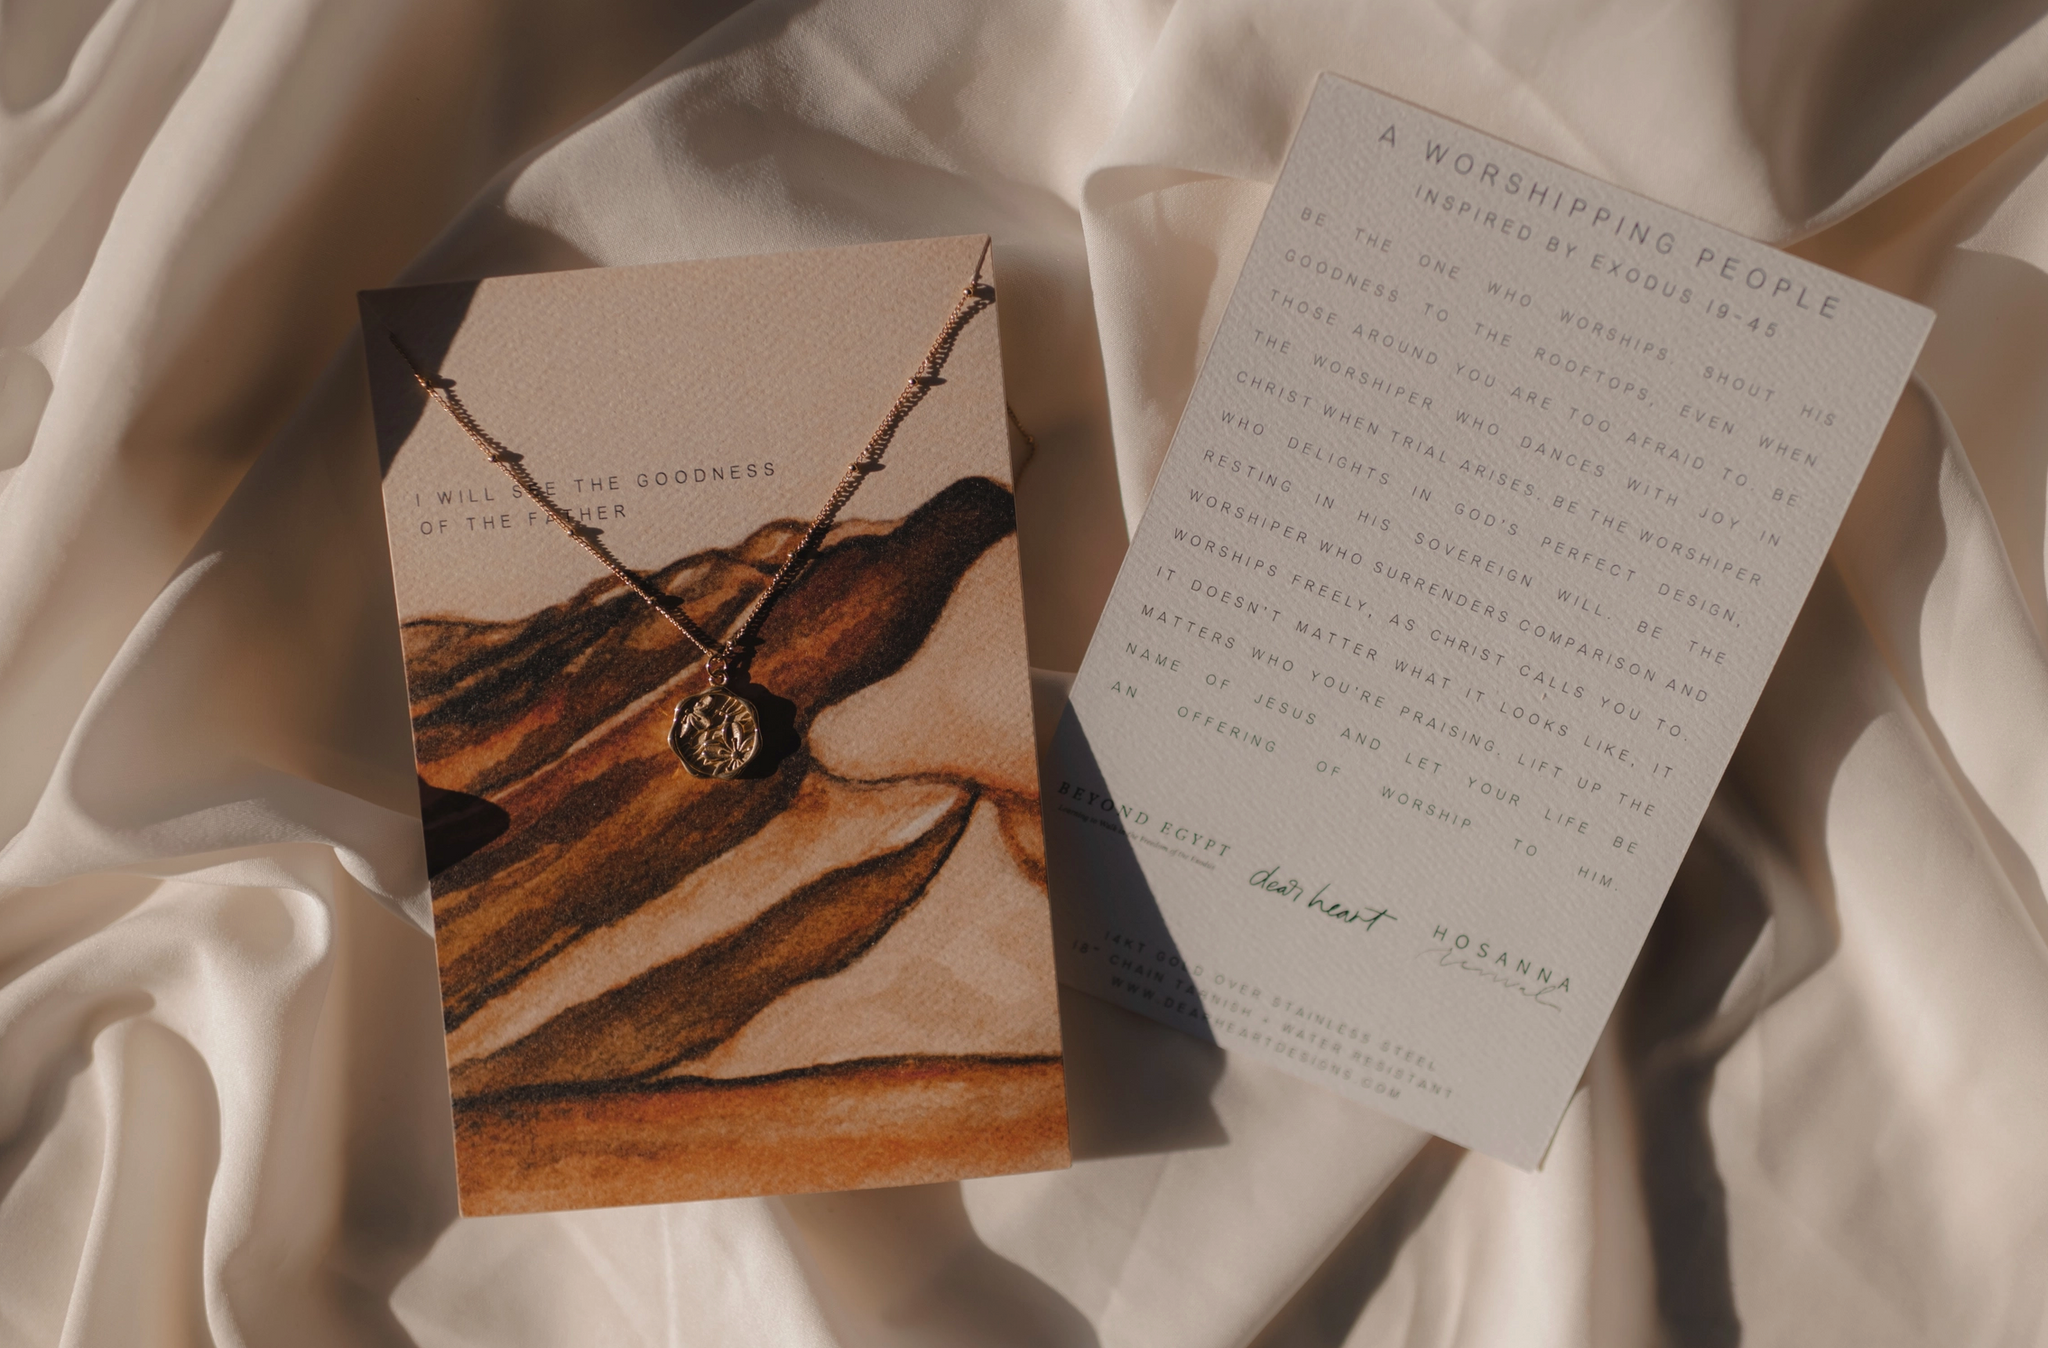 I WILL SEE THE GOODNESS
OF THE FATHER
A WORSHIPPING PEOPLE
INSPIRED BY EXODUS 19-45
BE THE ONE WHO WORSHIPS. SHOUT HIS
GOODNESS TO THE ROOFTOPS, EVEN WHEN
THOSE AROUND YOU ARE TOO AFRAID TO BE
THE WORSHIPER WHO DANCES WITH JOY IN
CHRIST WHEN TRIAL ARISES. BE THE WORSHIPER
WHO DELIGHTS IN GOD'S PERFECT DESIGN,
RESTING IN HIS SOVEREIGN WILL. BE THE
WORSHIPER WHO SURRENDERS COMPARISON AND
WORSHIPS FREELY, AS CHRIST CALLS YOU TO.
IT DOESN'T MATTER WHAT IT LOOKS LIKE, IT
MATTERS WHO YOU'RE PRAISING. LIFT UP THE
NAME OF JESUS AND LET YOUR LIFE BE
AN OFFERING OF WORSHIP TO HIM.
BEYOND EGYPT
Learning to Walk in the Freedom of the Father
dear heart
HOSANNA
Revival
14KT GOLD OVER STAINLESS STEEL
18" CHAIN TARNISH + WATER RESISTANT
WWW.DEARHEARTDESIGNS.COM